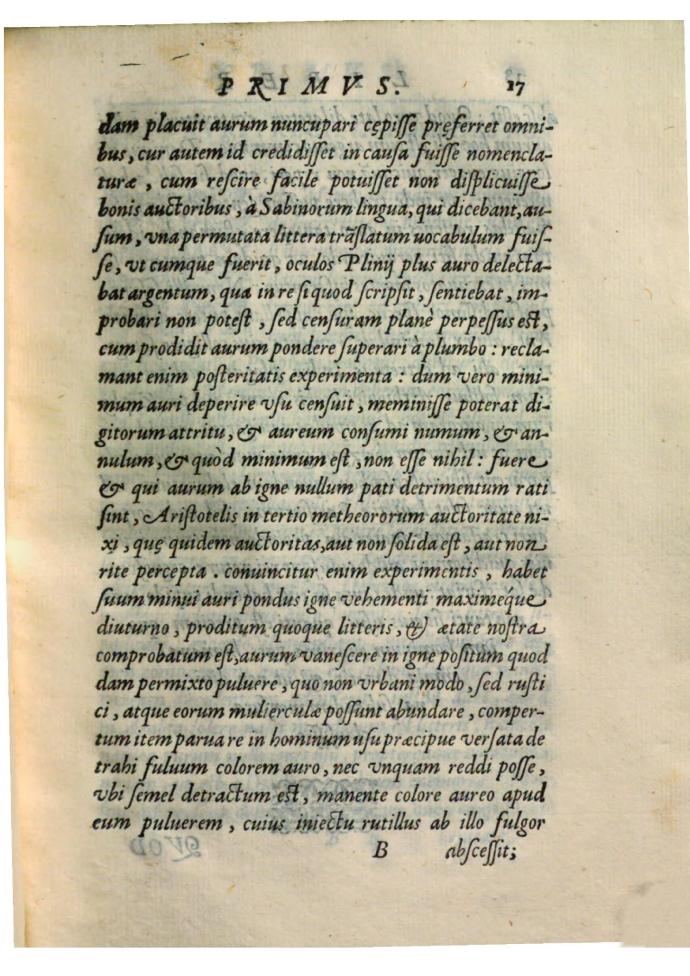 PRIMVS. 17
dam placuit aurum nuncupari cępisse pręferret omni-
bus, cur autem id credidisset in causa fuisse nomencla-
turæ, cum rescire facile potuisset non displicuisse
bonis auctoribus, à Sabinorum lingua, qui dicebant, au-
sum, vna permutata littera trãslatum uocabulum fuis-
se, vt cumque fuerit, oculos Plinij plus auro delecta-
bat argentum, qua in re si quod scripsit, sentiebat, im-
probari non potest, sed censuram planè perpessus est,
cum prodidit aurum pondere superari à plumbo: recla-
mant enim posteritatis experimenta: dum vero mini-
mum auri deperire vsu censuit, meminisse poterat di-
gitorum attritu, & aureum consumi numum, & an-
nulum, & quòd minimum est, non esse nihil: fuere
& qui aurum ab igne nullum pati detrimentum rati
sint, Aristotelis in tertio metheororum auctoritate ni-
xi, quę quidem auctoritas, aut non solida est, aut non
rite percepta. conuincitur enim experimentis, habet
suum minui auri pondus igne vehementi maximeq́ue
diuturno, proditum quoque litteris, & ætate nostra
comprobatum est, aurum vanescere in igne positum quod
dam permixto puluere, quo non vrbani modo, sed rusti
ci, atque eorum mulierculæ possunt abundare, comper-
tum item parua re in hominum usu præcipue versata de
trahi fuluum colorem auro, nec vnquam reddi posse,
vbi semel detractum est, manente colore aureo apud
eum puluerem, cuius iniectu rutillus ab illo fulgor
B abscessit;